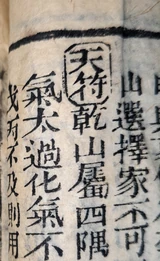 山選擇家不可
天符乾山屬四隅
氣太過化氣不
丙不及則用